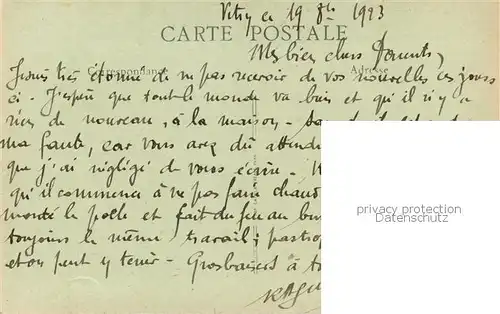 Vitry le 19 8bre 1923
CARTE POSTALE
Mes bien chers Parents,
Correspondance Adresse
Je suis très étonné de ne pas recevoir de vos nouvelles ces jours
ci. J'espère que tout le monde va bien et qu'il n'y a
rien de nouveau, à la maison.
ma faute, car vous avez dû attendre
que j'ai négligé de vous écrire.
qu'il commence à ne pas faire chaud
monté le poêle et fait du feu au bureau
toujours le même travail; pas trop
et on peut y tenir. Gros baisers à
privacy protection
Datenschutz